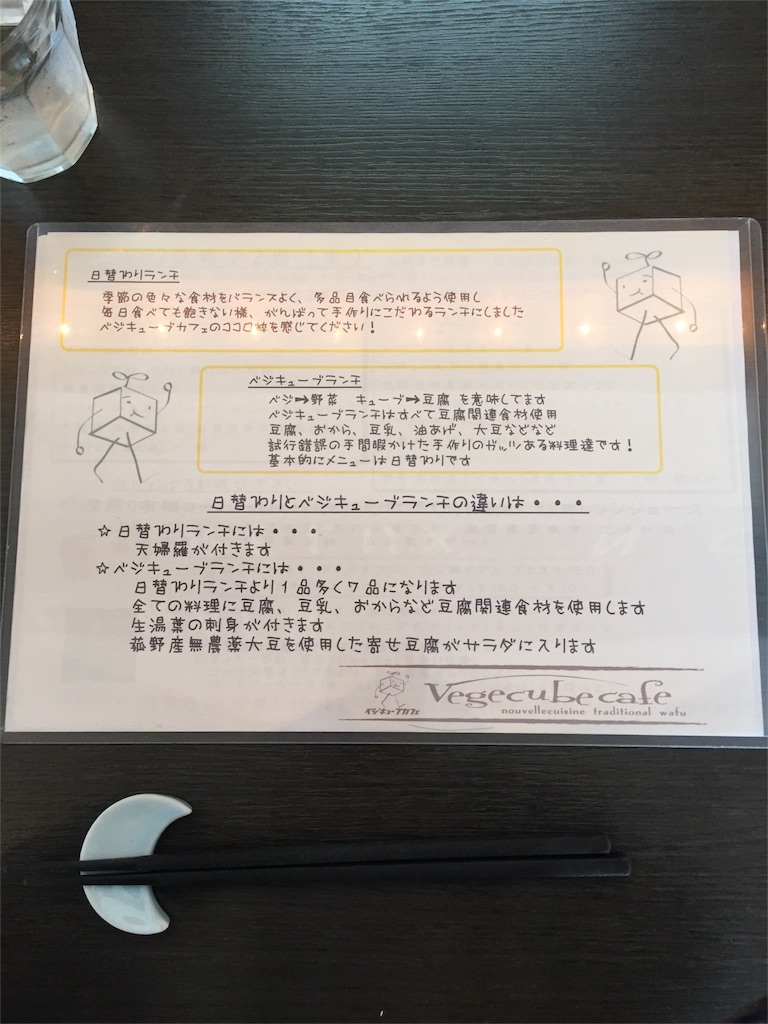 日替わりランチ
季節の色々な食材をバランスよく、多品目食べられるよう使用し
毎日食べても飽きない様、がんばって手作りにこだわるランチにしました
ベジキューブカフェのココロ粋を感じてください！
ベジキューブランチ
ベジ➡野菜　キューブ➡豆腐 を意味してます
ベジキューブランチはすべて豆腐関連食材使用
豆腐、おから、豆乳、油あげ、大豆などなど
試行錯誤の手間暇かけた手作りのガッツある料理達です！
基本的にメニューは日替わりです
日替わりとベジキューブランチの違いは・・・
☆日替わりランチには・・・
天婦羅が付きます
☆ベジキューブランチには・・・
日替わりランチより１品多く７品になります
全ての料理に豆腐、豆乳、おからなど豆腐関連食材を使用します
生湯葉の刺身が付きます
菰野産無農薬大豆を使用した寄せ豆腐がサラダに入ります
ベジキューブカフェ
Vegecubecafe
nouvellecuisine traditional wafu